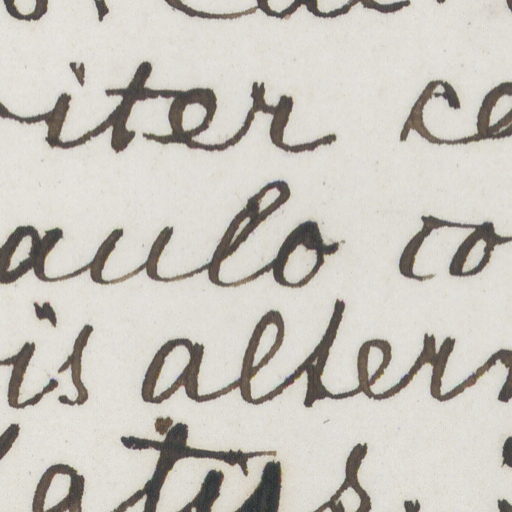 iter ce
aulo co
is altern
latus.